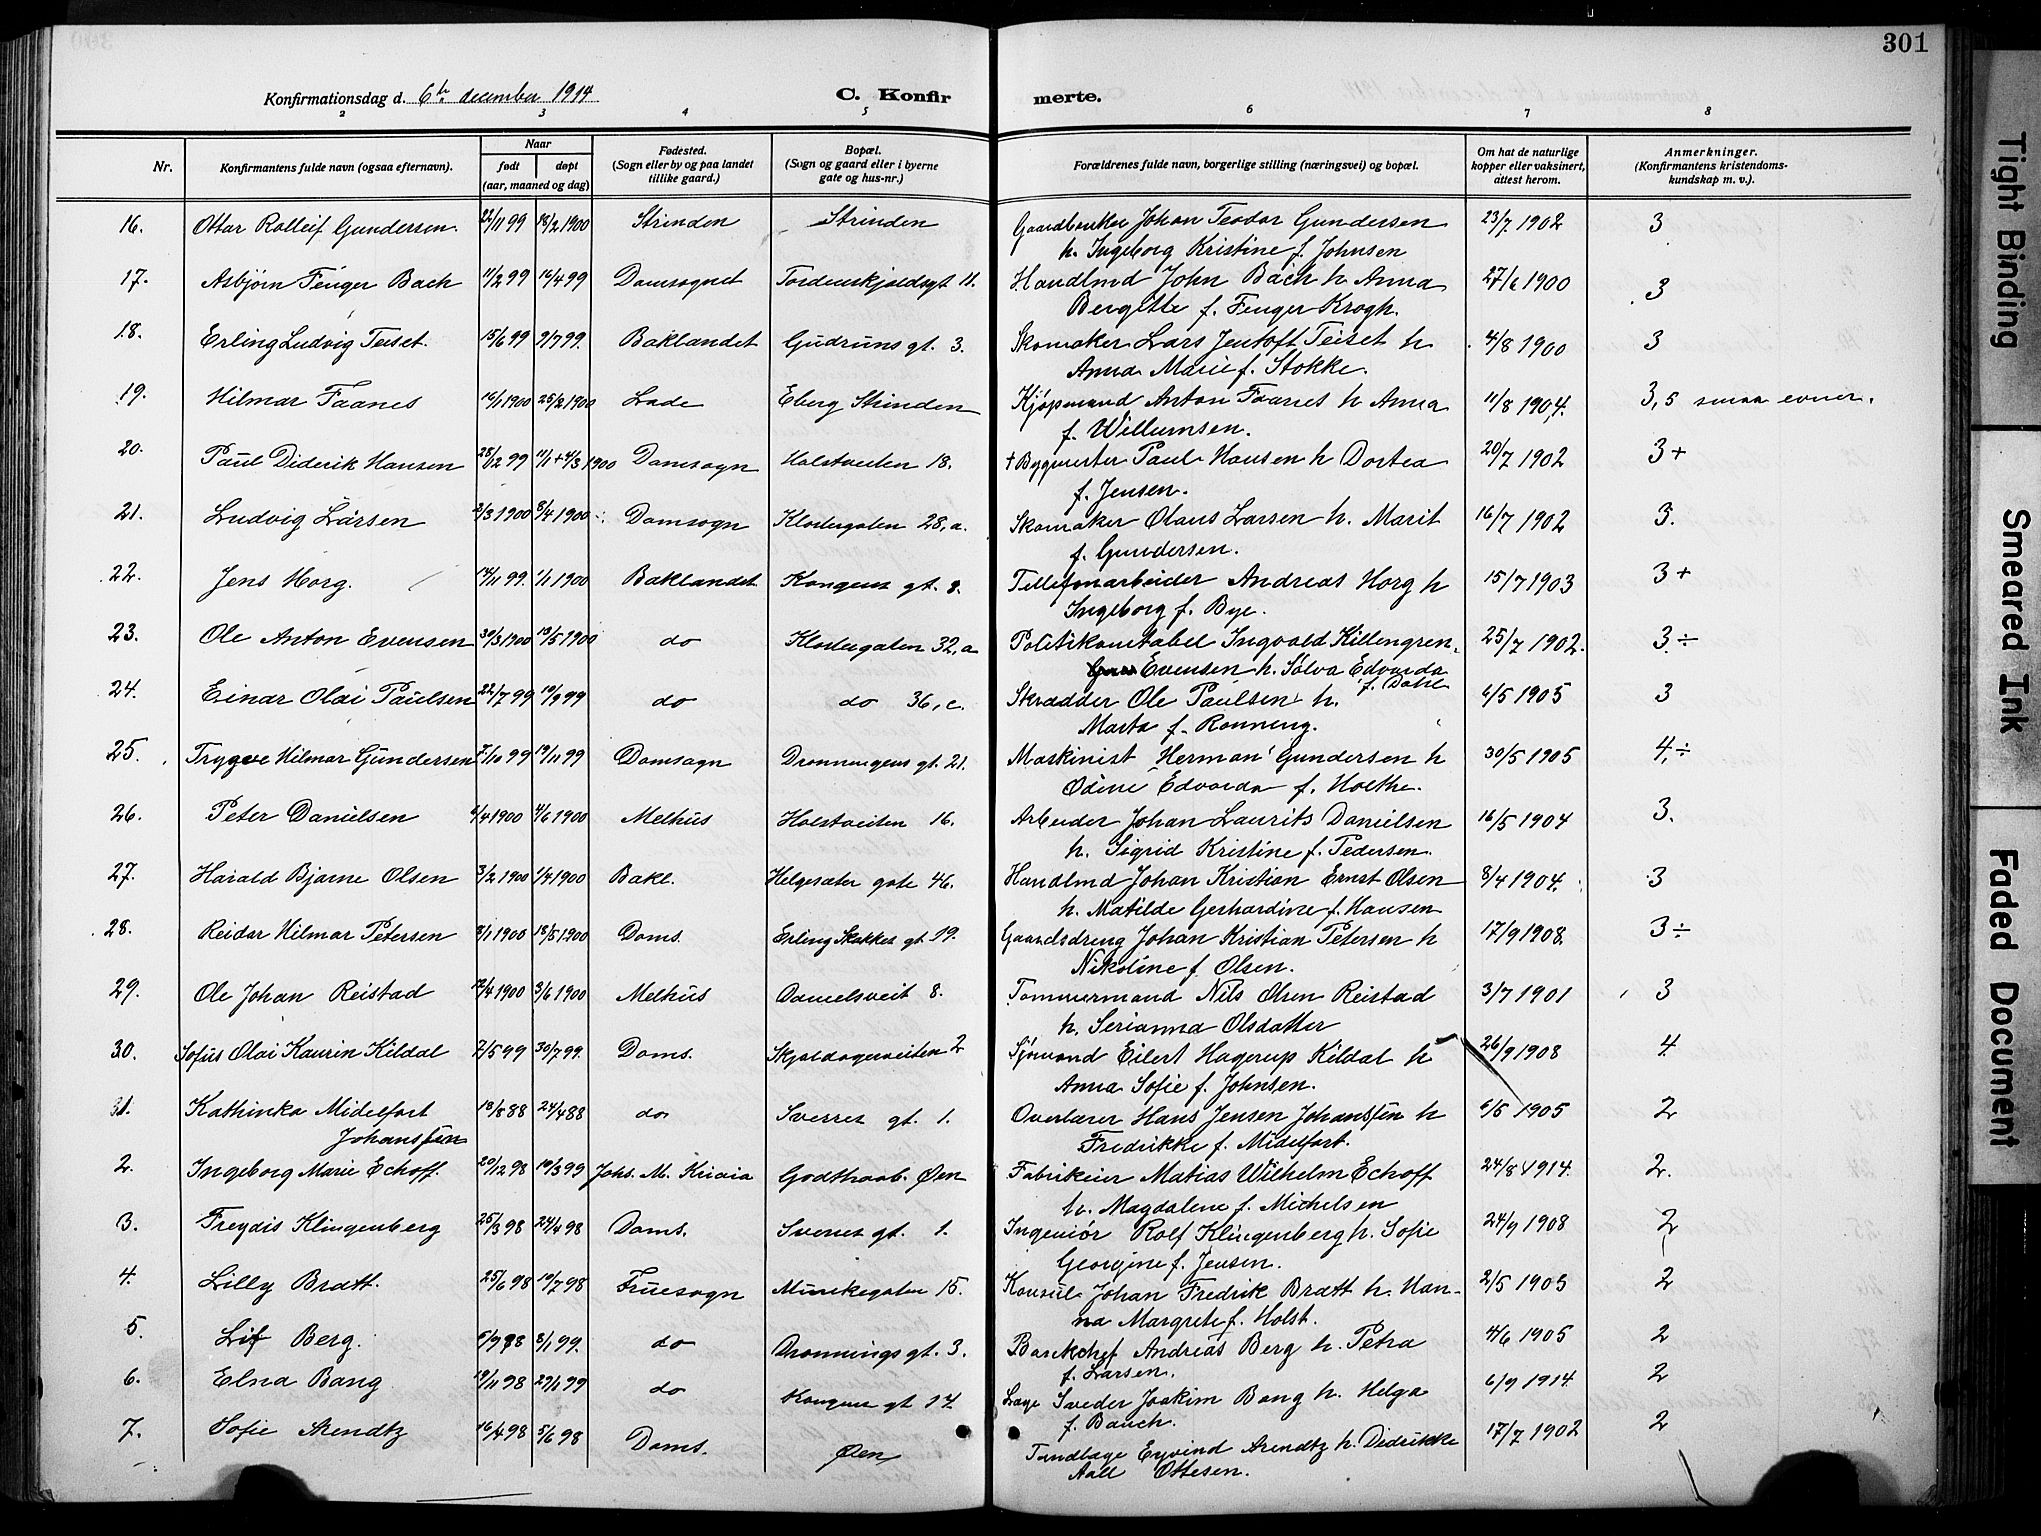 301
Konfirmationsdag d. 6te december 1914
C. Konfir
merte.
2 3 4 5 6 7 8
Nr.
Konfirmantens fulde navn (ogsaa efternavn).
Naar
født
døpt
(aar, maaned og dag)
Fødested.
(Sogn eller by og paa landet
tillike gaard.)
Bopæl.
(Sogn og gaard eller i byerne
gate og hus-nr.)
Forældrenes fulde navn, borgerlige stilling (næringsvei) og bopæl.
Om hat de naturlige
kopper eller vaksinert,
attest herom.
Anmerkninger.
(Konfirmantens kristendoms-
kundskap m. v.).
16. Ottar Rolleif Gundersen. 22/11 99 18/2 1900 Strinden Strinden Gaardbruker Johan Teodor Gundersen 23/7 1902 3
h. Ingeborg Kristine f. Johnsen
17. Asbjørn Fenger Bach 11/2 99 16/4 99 Domsognet Tordenskjoldsgt 11. Handlmd John Bach h Anna 27/6 1900 3
Bergitte f. Fenger Krogh.
18. Erling Ludvig Teiset. 15/6 99 9/7 99. Baklandet Gudruns gt. 3. Skomaker Lars Jentoft Teiset h 4/8 1900 3
Anna Marie f. Stokke.
19. Hilmar Faanes 16/1 1900 25/2 1900 Lade Eberg Strinden Kjøpmand Anton Faanes h Anna 11/8 1904. 3,5 smaa evner.
f. Willumsen.
20. Paul Diderik Hansen 25/12 99 11/1 + 4/3 1900 Domsogn Holstveiten 18. + Bygmester Paul Hansen h Dortea 20/7 1902 3+
f. Jensen.
21. Ludvig Larsen 2/3 1900 8/4 1900 Domsogn Klostergaten 28, a. Skomaker Olaus Larsen h. Marit 16/7 1902 3.
f. Gundersen.
22. Jens Horg. 14/11 99. 1/1 1900 Baklandet. Kongens gt. 8. Tellefonarbeider Andreas Horg h 15/7 1903 3+
Ingeborg f. Bye.
23. Ole Anton Evensen 30/3 1900 13/5 1900 do Klostergaten 32, a Politikonstabel Ingvald Killengren 25/7 1902. 3÷
Evensen h. Solva Edvarda
f. Dahl
24. Einar Olai Paulsen 22/7 99 10/9 99 do do 36, c. Skrædder Ole Paulsen h. 6/5 1905 3
Marta f. Rønning.
25. Trygve Hilmar Gundersen 7/10 99 19/11 99 Domsogn Dronningens gt. 21. Maskinist Herman Gundersen h 30/5 1905 4,÷
Ødine Edvarda f. Holthe.
26. Peter Danielsen 6/4 1900 4/6 1900 Melhus Holstveiten 16. Arbeider Johan Laurits Danielsen 16/5 1904 3.
h. Sigrid Kristine f. Pedersen.
27. Harald Bjarne Olsen 3/2 1900 1/4 1900 Bakl. Helgesæter gate 46. Handlmd Johan Kristian Ernst Olsen 8/4 1904. 3
h. Matilde Gerhardine f. Hansen
28. Reidar Hilmar Petersen 8/1 1900 18/3 1900 Doms. Erling Skakkes gt. 19. Gaardsdreng Johan Kristian Petersen h 17/9 1908. 3÷
Nikoline f. Olsen.
29. Ole Johan Reistad 12/4 1900 3/6 1900 Melhus Danielsveit 8. Tømmermand Nils Olsen Reistad 3/7 1901 3
h. Serianna Olsdatter
30. Sofus Olai Kaurin Kildal 7/5 99 30/7 99. Doms. Skjoldagerveiten 2 Sjømand Eilert Hagerup Kildal h 26/9 1908 4.
Anna Sofie f. Johnsen.
31. Kathinka Midelfart 18/8 88 24/4 88 do Sverres gt. 1. Overlærer Hans Jensen Johanssen h 6/5 1905 2
Johanssen Fredrikke f. Midelfart.
2. Ingeborg Marie Echoff. 20/12 98 19/3 99 Johs. M. Godthaab. Øen Fabrikeier Matias Wilhelm Echoff 24/8 1914. 2.
h. Magdalene f. Michelsen
3. Freydis Klingenberg 25/3 98 24/4 98 Doms. Sverres gt. 1. Ingeniør Rolf Klingenberg h. Sofie 24/9 1908 2
Georgine f. Jensen.
4. Lilly Bratt. 25/6 98 19/7 98 Fruesogn Munkegaten 15. Konsul Johan Fredrik Bratt h. Han- 2/5 1905 2
na Margrete f. Holst.
5. Lif Berg. 5/9 98 8/1 99. do Dronningsgt. 3. Bankchef Andreas Berg h. Petra 4/6 1905 2
f. Larsen.
6. Elna Bang 19/11 98 29/1 99 do Kongens gt 14. Læge Sveder Joakim Bang h. Helga 6/9 1914. 2
f. Bauch.
7. Sofie Arendtz 16/4 98 5/6 98 Doms. Øen Tandlæge Eyvind Arendtz h. Didrikke 17/7 1902 2
Aall Ottesen.
Tight Binding
Smeared Ink
Faded Document